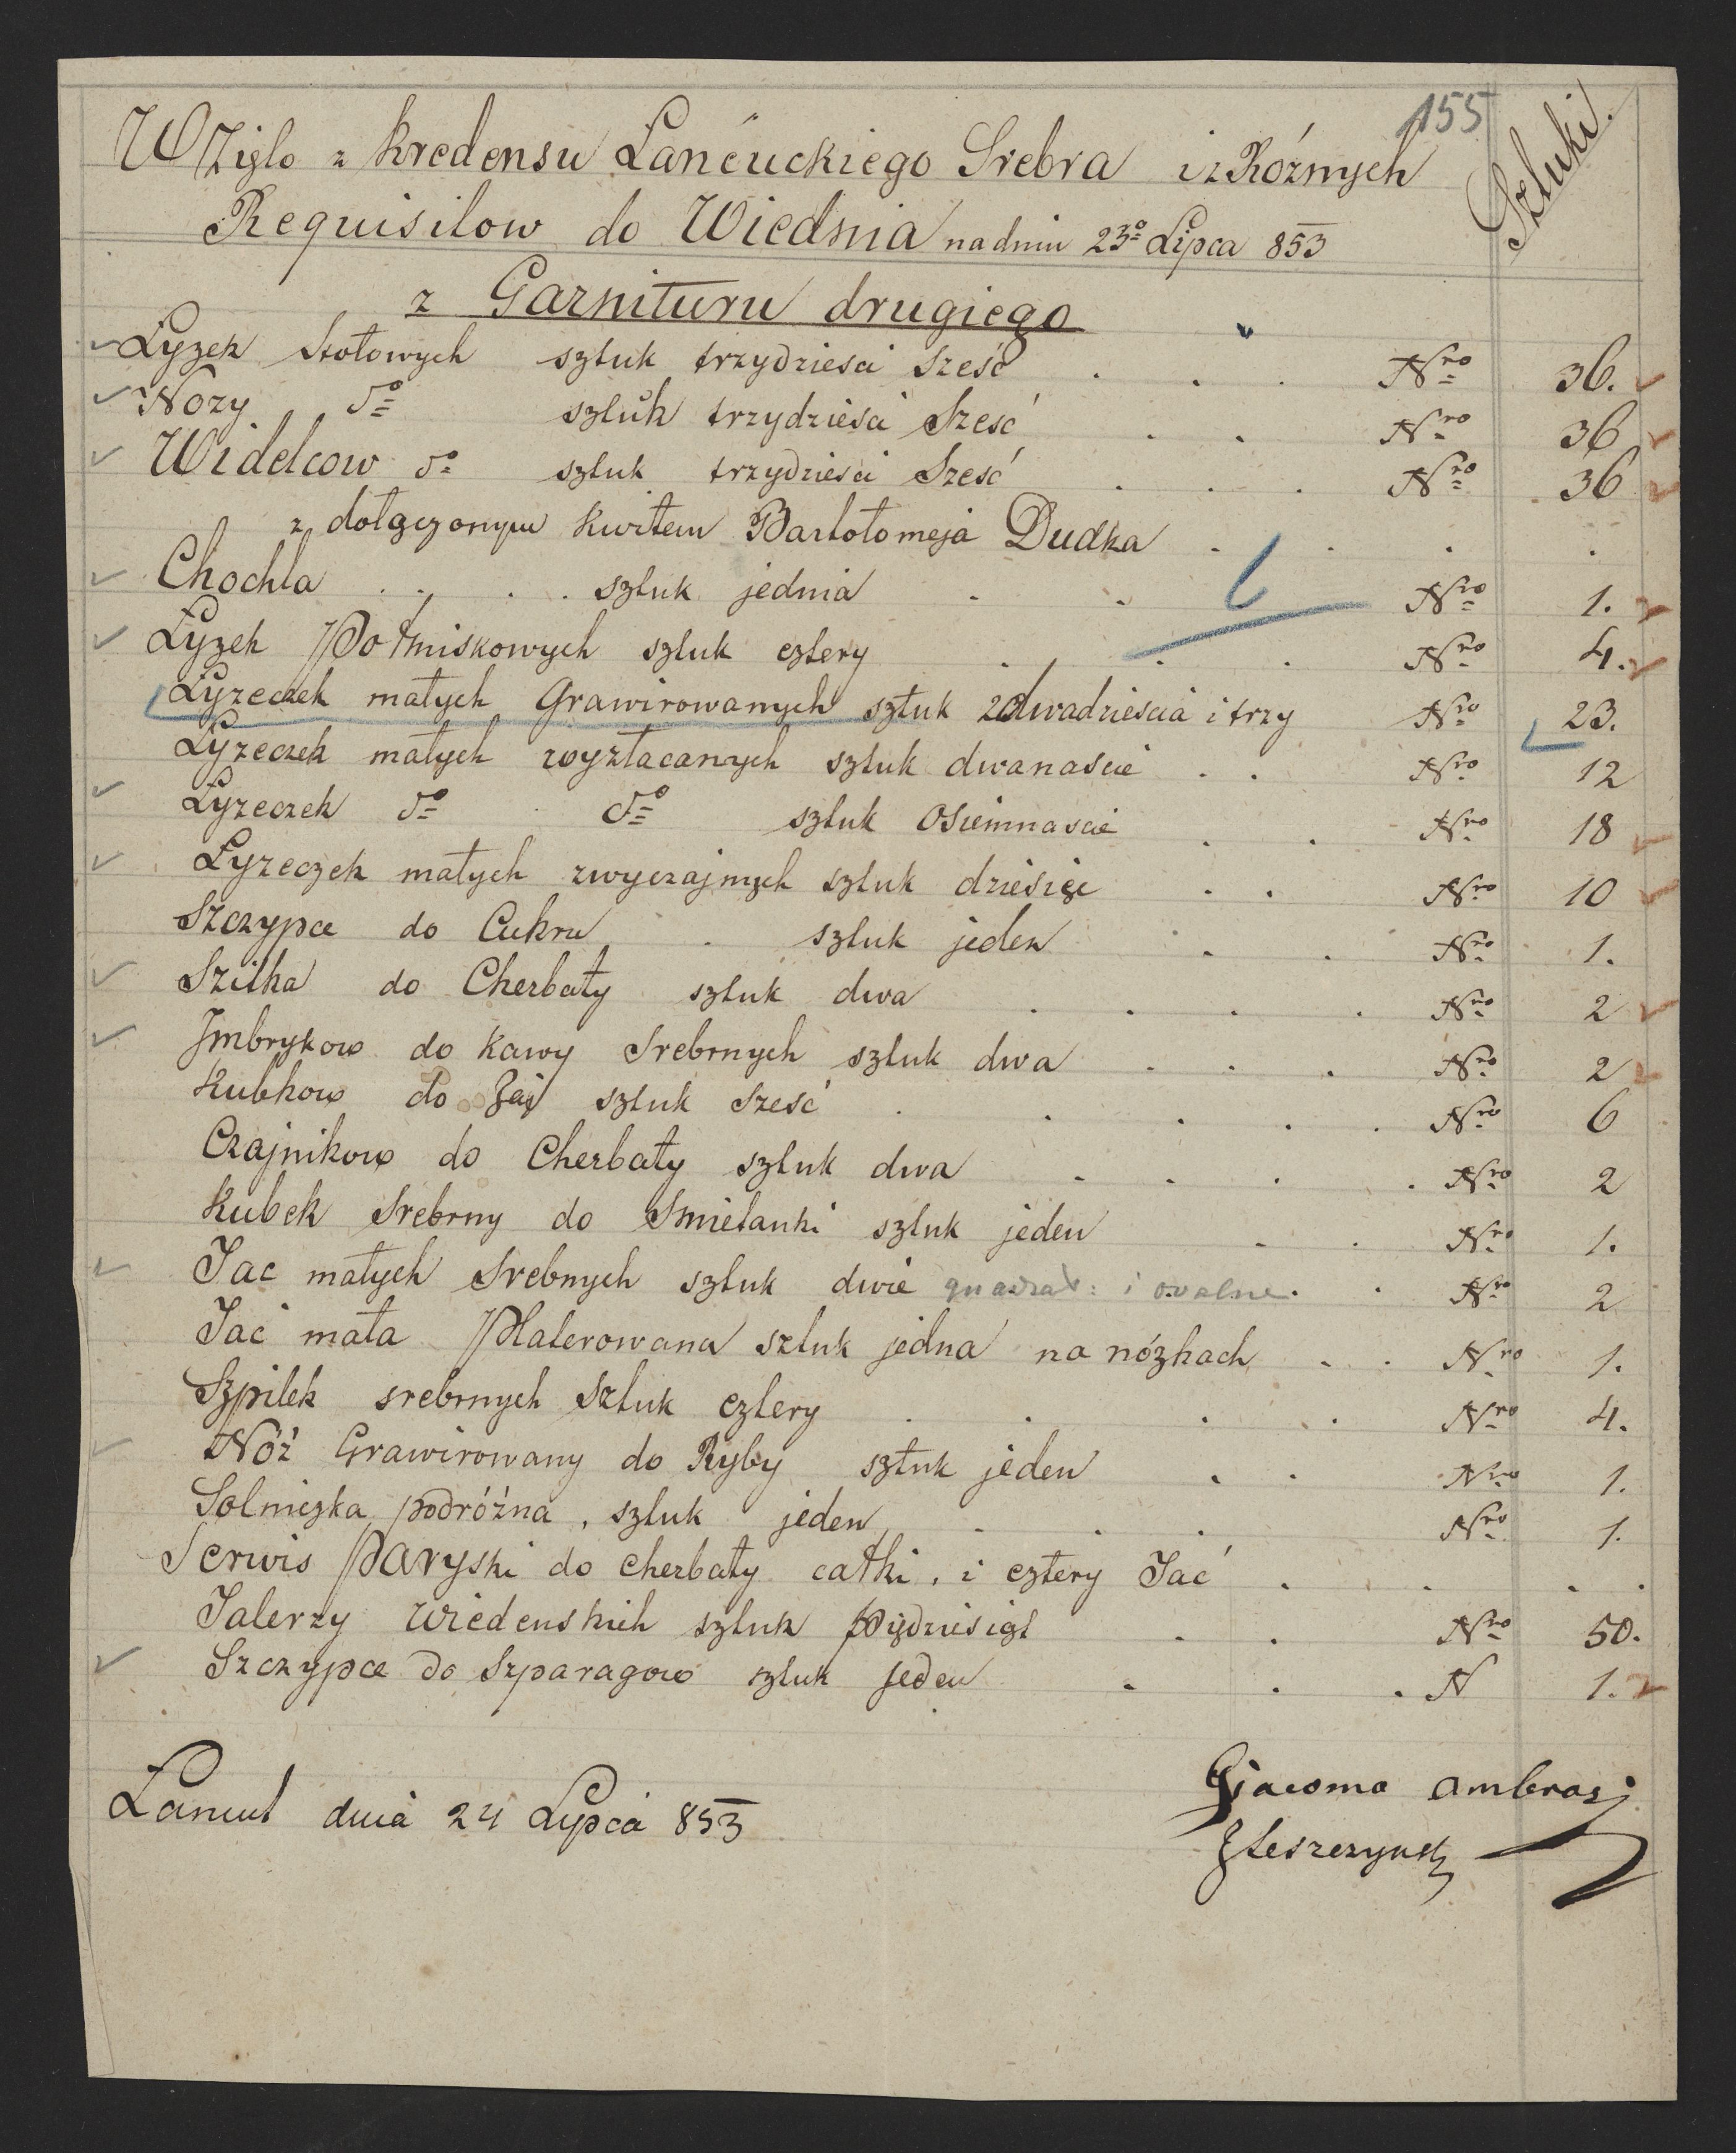 155
Sztuki.
Wzięlo z kredensu Łańcuckiego Srebra i z Różnych
Requisitow do Wiednia na dniu 23º Lipca 853
z Garnituru drugiego
Łyzek Stołowych sztuk trzydziesci Sześć . . . Nro 36.
Nozy dº sztuk trzydziesci Sześć . . Nro 36
Widelcow dº sztuk trzydziesci Sześć . . . Nro 36
z dołączonym kwitem Bartołomeja Dudka . . . .
Chochla . . . . sztuk jedna . . Nro 1.
Łyzek Połmiskowych sztuk cztery . . . Nro 4.
Łyzeczek małych Grawirowanych sztuk dwadzieścia i trzy Nro 23.
Łyzeczek małych wyzłacanych sztuk dwanaście . . Nro 12
Łyzeczek dº dº sztuk Osiemnaście . . Nro 18
Łyzeczek małych zwyczajnych sztuk dziesięc . . Nro 10
Szczypce do Cukru . sztuk jeden . . Nro 1.
Szitka do Cherbaty sztuk dwa . . . . Nro 2
Jmbrykow do Kawy Srebrnych sztuk dwa . . . Nro 2
Kubkow do Jaj sztuk sześć . . . . . Nro 6
Czajnikow do Cherbaty sztuk dwa . . . . Nro 2
Kubek Srebrny do Smietanki sztuk jeden . . Nro 1.
Tac małych Srebnych sztuk dwie quadrat: i ovalne . . Nro 2
Tać mała Platerowana sztuk jedna na nózkach . . Nro 1.
Szpilek srebrnych sztuk cztery . . . . Nro 4.
Nóż Grawirowany do Ryby sztuk jeden . . Nro 1.
Solniczka podróżna, sztuk jeden . . . Nro 1.
Serwis Paryski do cherbaty całki, i cztery Tać . . . .
Talerzy Wiedenskich sztuk piędziesiąt . . Nro 50.
Szczypce do Szparagow sztuk jeden . . . N 1.
Łancut dnia 24 Lypca 853
Giacomo Ambrosi